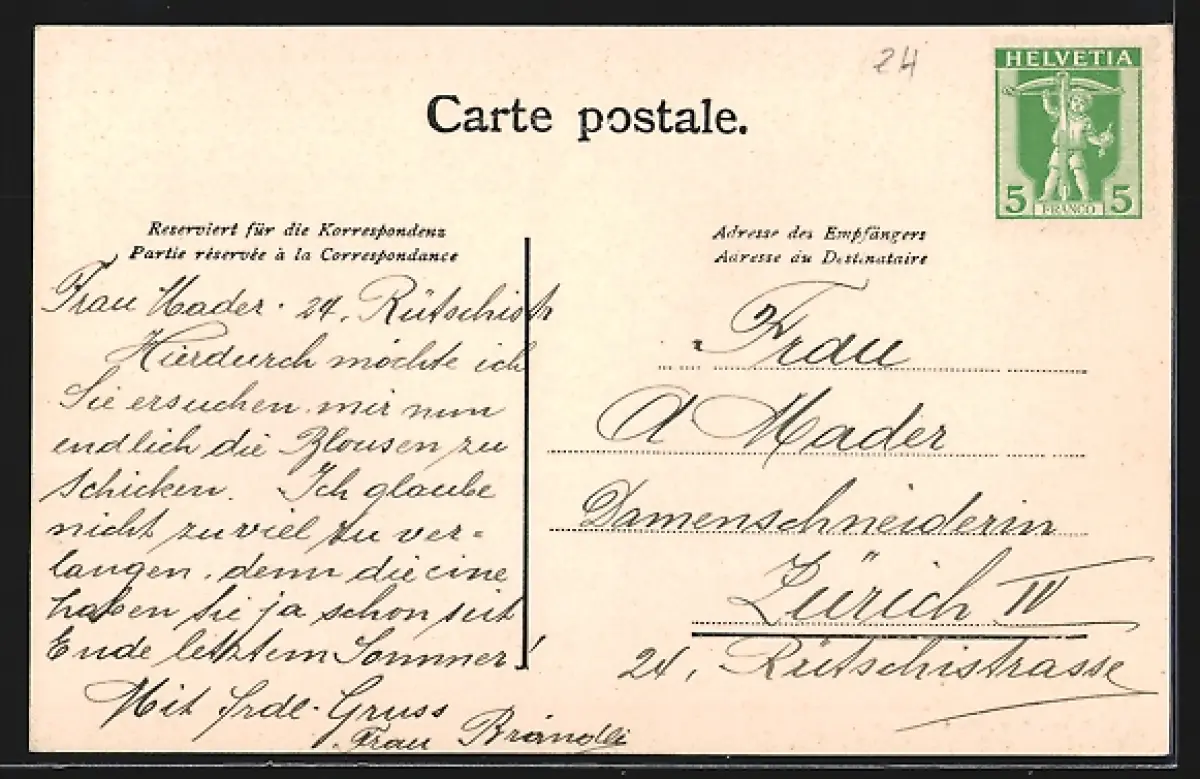 24
HELVETIA
5 FRANCO 5
Carte postale.
Reserviert für die Korrespondenz
Partie réservée à la Correspondance
Frau Mader. 24, Rütschistr
Hierdurch möchte ich
Sie ersuchen mir nun
endlich die Blousen zu
schicken. Ich glaube
nicht zuviel zu ver-
langen, denn die eine
haben Sie ja schon seit
Ende letztem Sommer!
Mit frdl. Gruss
Frau Brändli
Adresse des Empfängers
Adresse du Destinataire
Frau
A Mader
Damenschneiderin
Zürich IV
24, Rütschistrasse